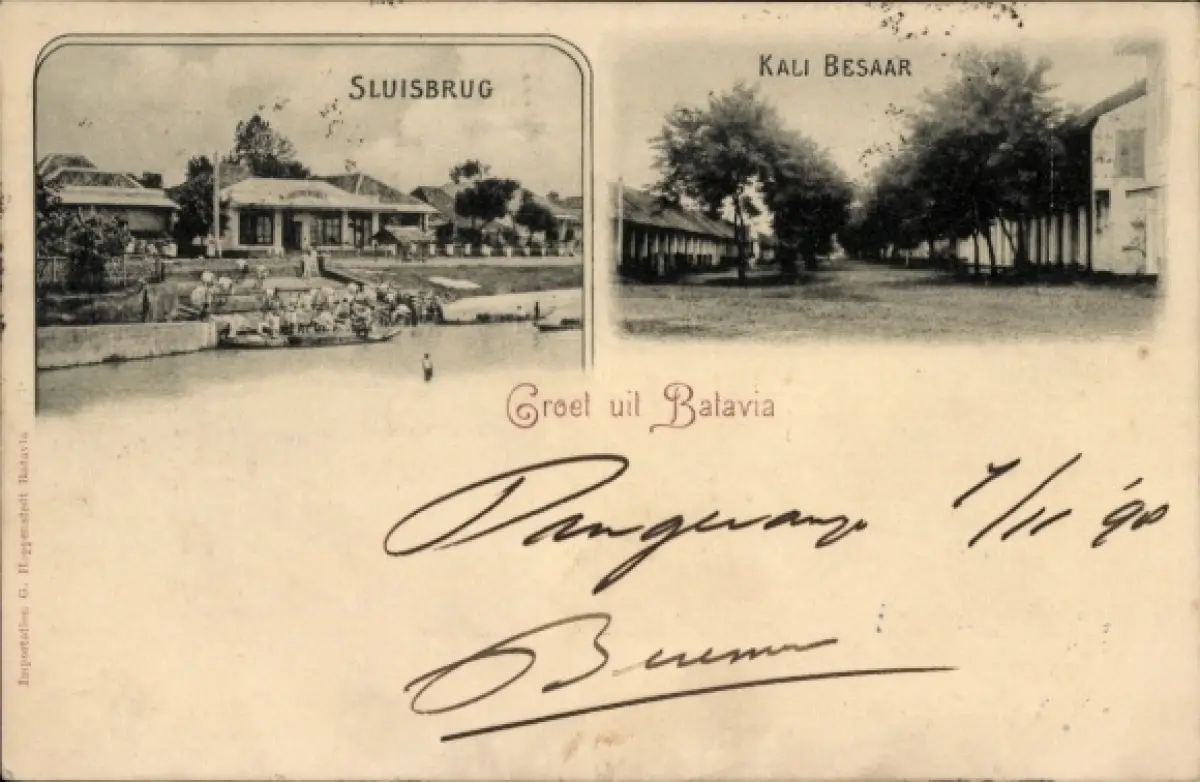 SLUISBRUG
KALI BESAAR
Groet uit Batavia
Tangerang 7/11 '90
Importation G. Hoppenstedt Batavia